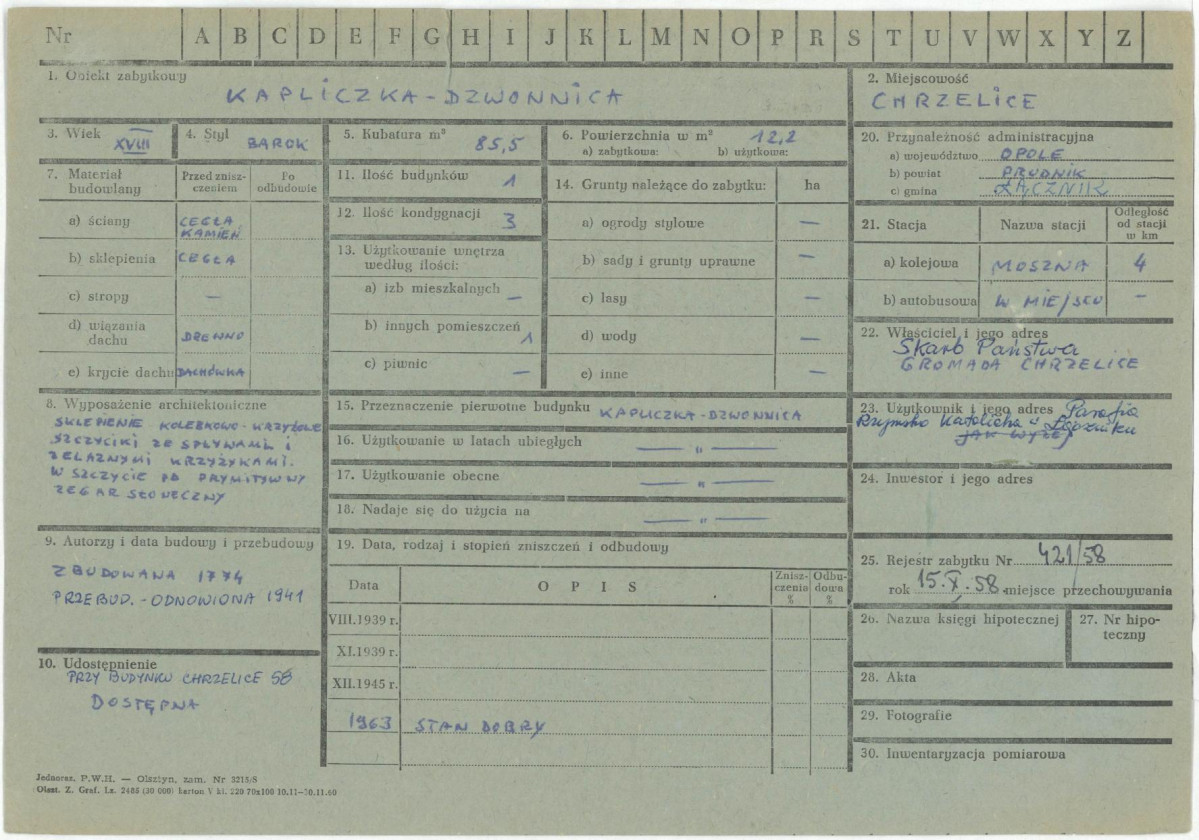 Nr A B C D E F G H I J K L M N O P R S T U V W X Y Z
1. Obiekt zabytkowy
KAPLICZKA-DZWONNICA
2. Miejscowość
CHRZELICE
3. Wiek
XVIII
4. Styl
BAROK
5. Kubatura m³
85,5
6. Powierzchnia w m²
12,2
a) zabytkowa: b) użytkowa:
20. Przynależność administracyjna
a) województwo OPOLE
b) powiat PRUDNIK
c) gmina ŁĄCZNIK
7. Materiał budowlany
Przed znisz-
czeniem
Po
odbudowie
a) ściany CEGŁA
KAMIEŃ
b) sklepienia CEGŁA
c) stropy —
d) wiązania
dachu DREWNO
e) krycie dachu DACHÓWKA
11. Ilość budynków 1
12. Ilość kondygnacji 3
13. Użytkowanie wnętrza
według ilości:
a) izb mieszkalnych —
b) innych pomieszczeń 1
c) piwnic —
14. Grunty należące do zabytku: ha
a) ogrody stylowe —
b) sady i grunty uprawne —
c) lasy —
d) wody —
e) inne —
21. Stacja Nazwa stacji Odległość
od stacji
w km
a) kolejowa MOSZNA 4
b) autobusowa W MIEJSCU —
22. Właściciel i jego adres
Skarb Państwa
GROMADA CHRZELICE
8. Wyposażenie architektoniczne
SKLEPIENIE KOLEBKOWO-KRZYŻOWE
SZCZYCIKI ZE SPŁYWAMI I
ŻELAZNYMI KRZYŻYKAMI.
W SZCZYCIE PD PRYMITYWNY
ZEGAR SŁONECZNY
15. Przeznaczenie pierwotne budynku KAPLICZKA-DZWONNICA
16. Użytkowanie w latach ubiegłych — " —
17. Użytkowanie obecne — " —
18. Nadaje się do użycia na — " —
23. Użytkownik i jego adres Parafia
Rzymsko Katolicka w Łączniku
JAK WYŻEJ
24. Inwestor i jego adres
9. Autorzy i data budowy i przebudowy
ZBUDOWANA 1774
PRZEBUD.-ODNOWIONA 1941
19. Data, rodzaj i stopień zniszczeń i odbudowy
Data OPIS Znisz-
czenia
% Odbu-
dowa
%
VIII.1939 r.
XI.1939 r.
XII.1945 r.
1963 STAN DOBRY
10. Udostępnienie
PRZY BUDYNKU CHRZELICE 58
DOSTĘPNA
25. Rejestr zabytku Nr 421/58
rok 15.X.58. miejsce przechowywania
26. Nazwa księgi hipotecznej
27. Nr hipo-
teczny
28. Akta
29. Fotografie
30. Inwentaryzacja pomiarowa
Jednoraz. P.W.H. — Olsztyn, zam. Nr 3215/S
Olszt. Z. Graf. Lz. 2485 (30 000) karton V kl. 220 70x100 10.11—30.11.60